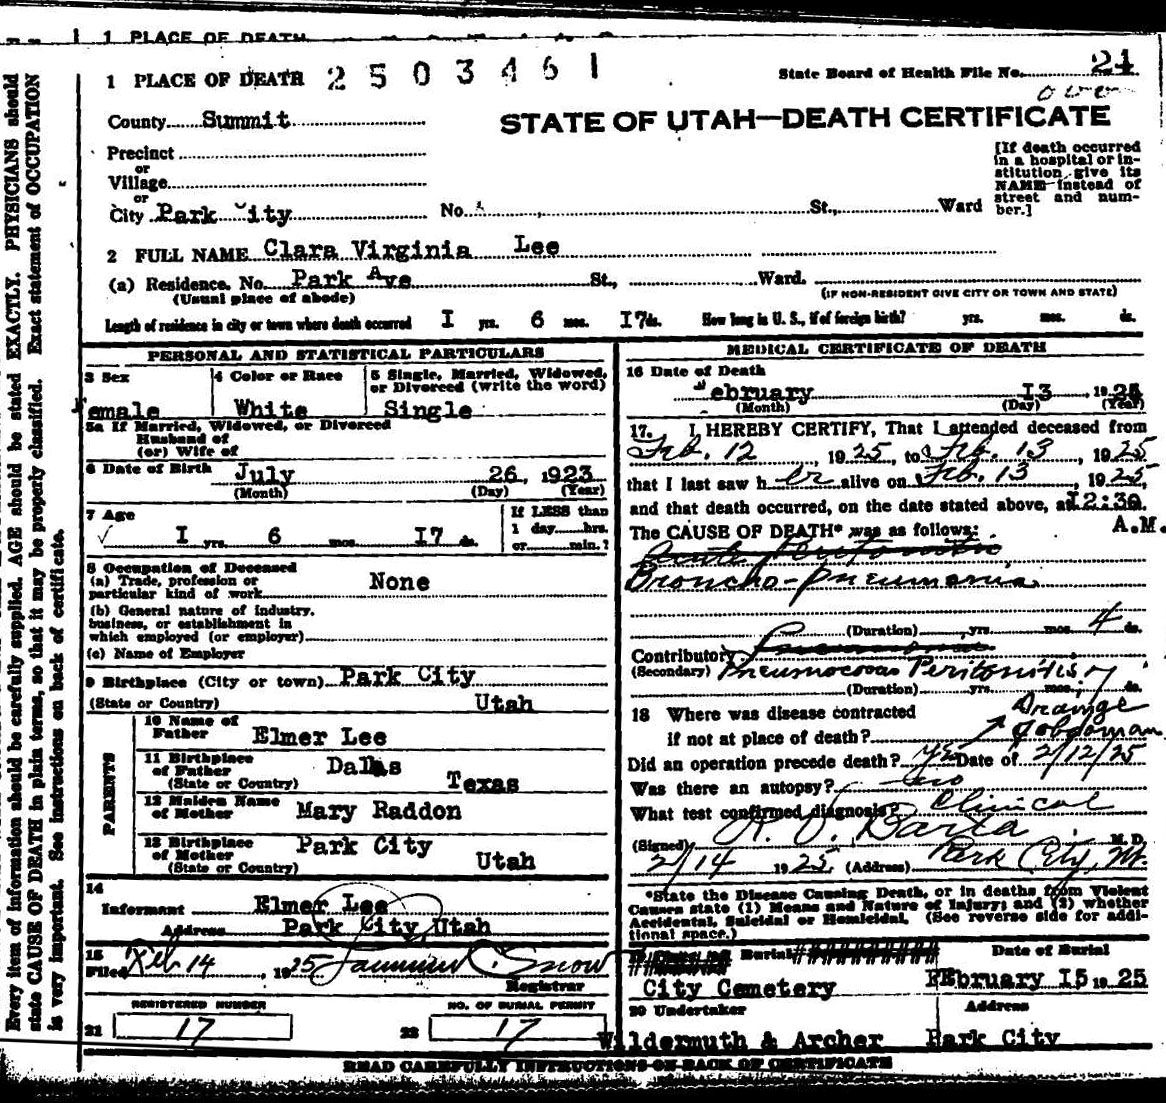 1 PLACE OF DEATH
1 PLACE OF DEATH 2503461
State Board of Health File No. 24
County Summit
STATE OF UTAH—DEATH CERTIFICATE
Precinct
or
Village
or
City Park City No. St., Ward
[If death occurred
in a hospital or in-
stitution give its
NAME instead of
street and num-
ber.]
2 FULL NAME Clara Virginia Lee
(a) Residence. No. Park Ave St., Ward.
(Usual place of abode) (IF NON-RESIDENT GIVE CITY OR TOWN AND STATE)
Length of residence in city or town where death occurred I yrs. 6 mos. I7 ds. How long in U. S., if of foreign birth? yrs. mos. ds.
PERSONAL AND STATISTICAL PARTICULARS
3 Sex 4 Color or Race 5 Single, Married, Widowed,
or Divorced (write the word)
Female White Single
5a If Married, Widowed, or Divorced
Husband of
(or) Wife of
6 Date of Birth July 26, 1923
(Month) (Day) (Year)
7 Age If LESS than
1 day hrs.
or min.?
✓ I yrs. 6 mos. I7 ds.
8 Occupation of Deceased
(a) Trade, profession or
particular kind of work None
(b) General nature of industry,
business, or establishment in
which employed (or employer)
(c) Name of Employer
9 Birthplace (City or town) Park City
(State or Country) Utah
PARENTS
10 Name of
Father Elmer Lee
11 Birthplace
of Father Dallas
(State or Country) Texas
12 Maiden Name
of Mother Mary Raddon
13 Birthplace
of Mother Park City
(State or Country) Utah
14
Informant Elmer Lee
Address Park City, Utah
15
Filed Feb 14, 1925 Snow
Registrar
REGISTERED NUMBER NO. OF BURIAL PERMIT
21 17 22 17
MEDICAL CERTIFICATE OF DEATH
16 Date of Death
February I3 1925
(Month) (Day) (Year)
17. I HEREBY CERTIFY, That I attended deceased from
Feb. 12, 1925, to Feb. 13, 1925
that I last saw h er alive on Feb. 13, 1925,
and that death occurred, on the date stated above, at I2:30
A.M.
The CAUSE OF DEATH* was as follows:
Acute Peritonitis
Broncho-pneumonia
(Duration) yrs. mos. 4 ds.
Contributory Pneumonia
(Secondary) Pneumococcus Peritonitis
(Duration) yrs. mos. ds.
18 Where was disease contracted
if not at place of death?
Drainage
of abdoman
Did an operation precede death? yes Date of 2/12/25
Was there an autopsy? no
What test confirmed diagnosis? Clinical
(Signed) Barta M. D.
2/14 1925 (Address) Park City, Ut.
*State the Disease Causing Death, or in deaths from Violent
Causes state (1) Means and Nature of Injury; and (2) whether
Accidental, Suicidal or Homicidal. (See reverse side for addi-
tional space.)
Burial Date of Burial
City Cemetery FEbruary I5 1925
20 Undertaker Address
Wildermuth & Archer Park City
READ CAREFULLY INSTRUCTIONS ON BACK OF CERTIFICATE
Every item of information should be carefully supplied. AGE should be stated EXACTLY. PHYSICIANS should
state CAUSE OF DEATH in plain terms, so that it may be properly classified. Exact statement of OCCUPATION
is very important. See instructions on back of certificate.